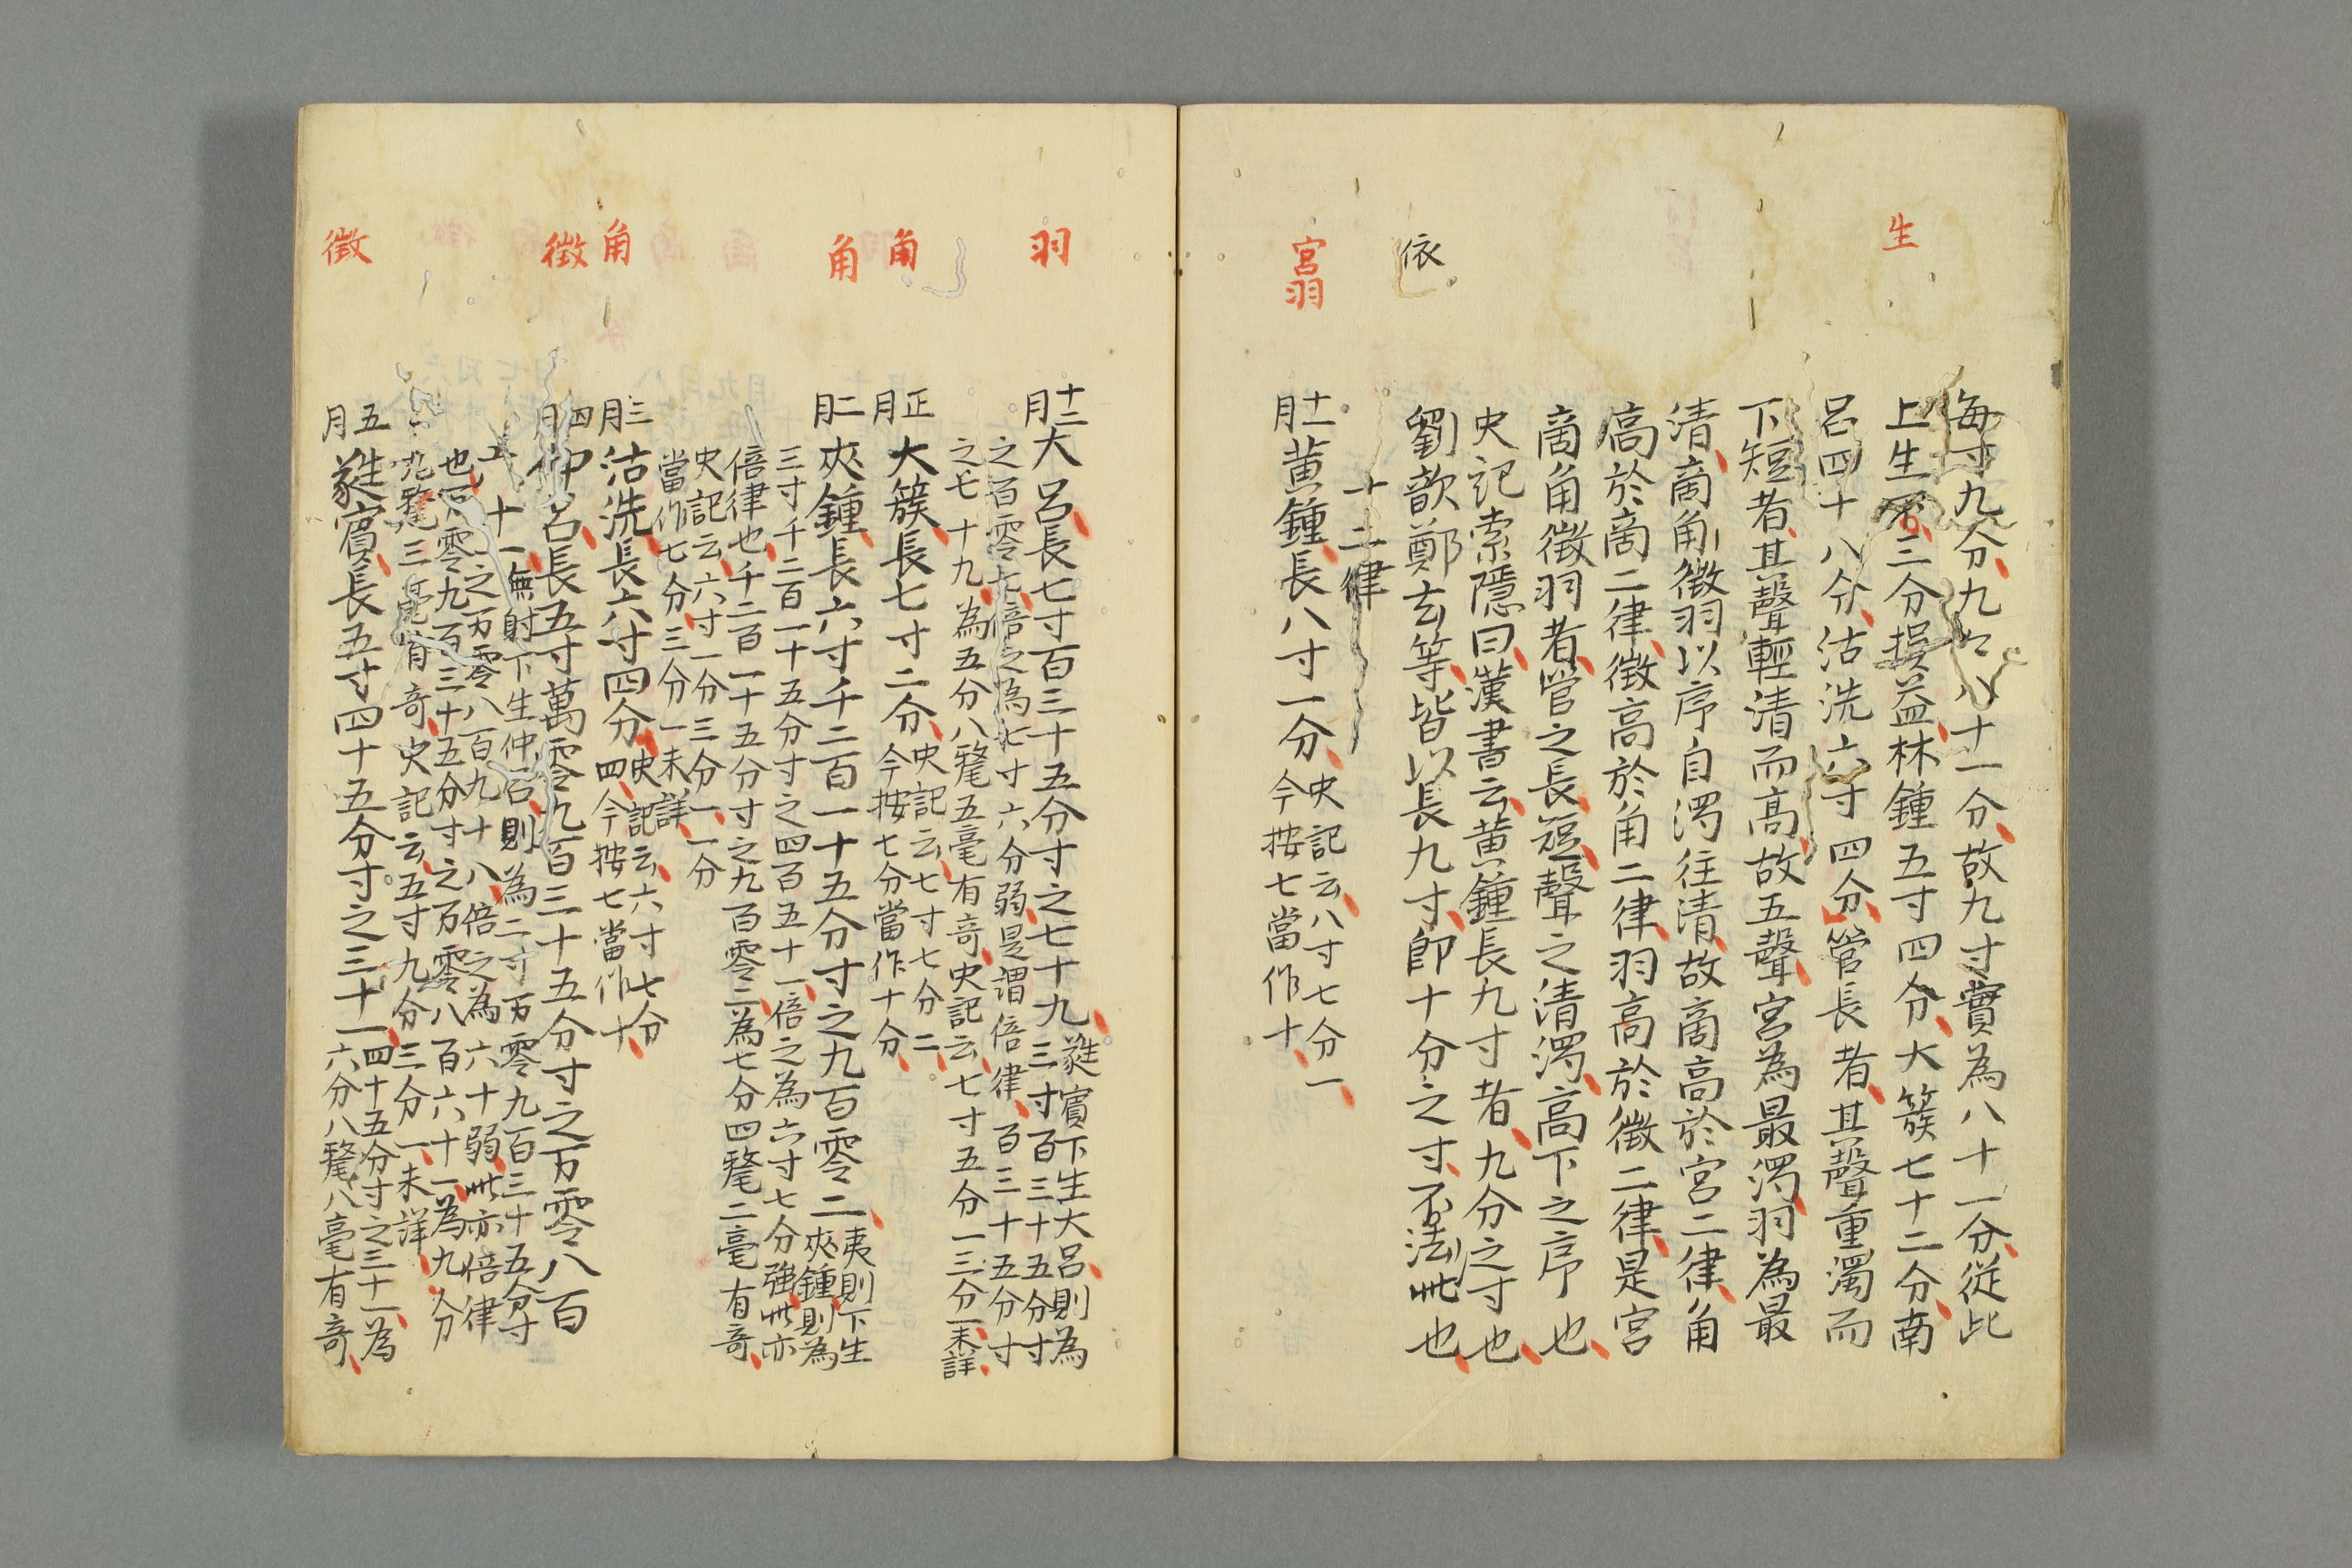 生
每寸九分九々八十一分故九寸實為八十一分從此
上生不三分損益林鍾五寸四分大簇七十二分南
呂四十八分沽洗六寸四分管長者其聲重濁而
下短者其聲輕清而高故五聲宮為最濁羽為最
清商角徵羽以序自濁往清故商高於宮二律角
高於商二律徵高於角二律羽高於徵二律是宮
商角徵羽者管之長短聲之清濁高下之序也
史記索隱曰漢書云黃鍾長九寸者九分之寸也
依
劉歆鄭玄等皆以長九寸即十分之寸不法此也
十二律
宮羽
十一月
黃鍾長八寸一分
史記云八寸七分一
今按七當作十
羽
十二月
大呂長七寸百三十五分寸之七十九
蕤賓下生大呂則為
三寸百三十五分寸
之百零七倍之為七寸六分弱是謂倍律百三十五分寸
之七十九為五分八氂五毫有奇史記云七寸五分一三分一未詳
角
正月
大簇長七寸二分
史記云七寸七分二
今按七分當作十分
角
二月
夾鍾長六寸千二百一十五分寸之九百零二
夷則下生
夾鍾則為
三寸千二百一十五分寸之四百五十一倍之為六寸七分強此亦
倍律也千二百一十五分寸之九百零二為七分四氂二毫有奇
史記云六寸一分三分一一分
當作七分三分一未詳
角
三月
沽洗長六寸四分
史記云六寸七分
四今按七當作十
徵
四月
仲呂長五寸萬零九百三十五分寸之万零八百
十一無射下生仲呂則為二寸万零九百三十五分寸
之万零八百九十八倍之為六十弱此亦倍律
也万零九百三十五分寸之万零八百六十一為九分
九氂三毫有奇史記云五寸九分三分一未詳
徵
五月
蕤賓長五寸四十五分寸之三十一
四十五分寸之三十一為
六分八氂八毫有奇